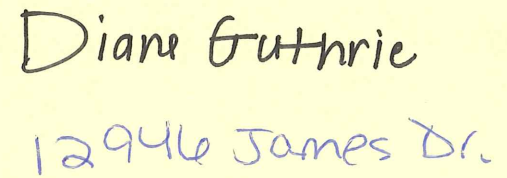 Diane Guthrie
12946 James Dr.